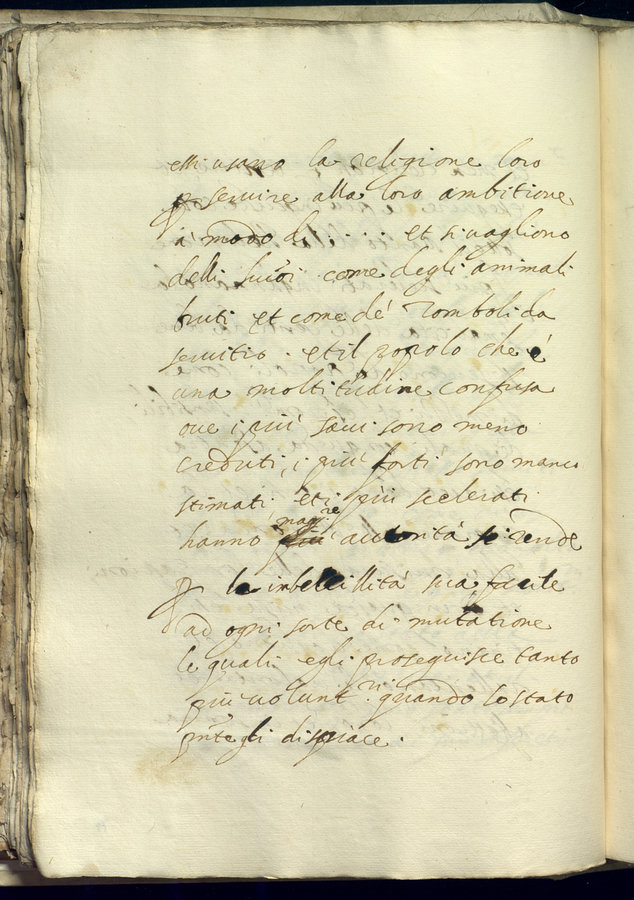 essi usano la religione loro
p servire alla loro ambitione
a modo di . . . . . et si vagliono
delli suoi come degli animali
bruti et come de'
servitio. et il popolo che è
una moltitudine confusa
ove i più savi sono meno
creduti, i più forti sono manco
stimati et i più scelerati
hanno magre autorità si rende
p la inbecillità sua facile
ad ogni sorte di mutatione
le quali egli proseguisce tanto
più volunt.ri quando lo stato
pnte gli dispiace.